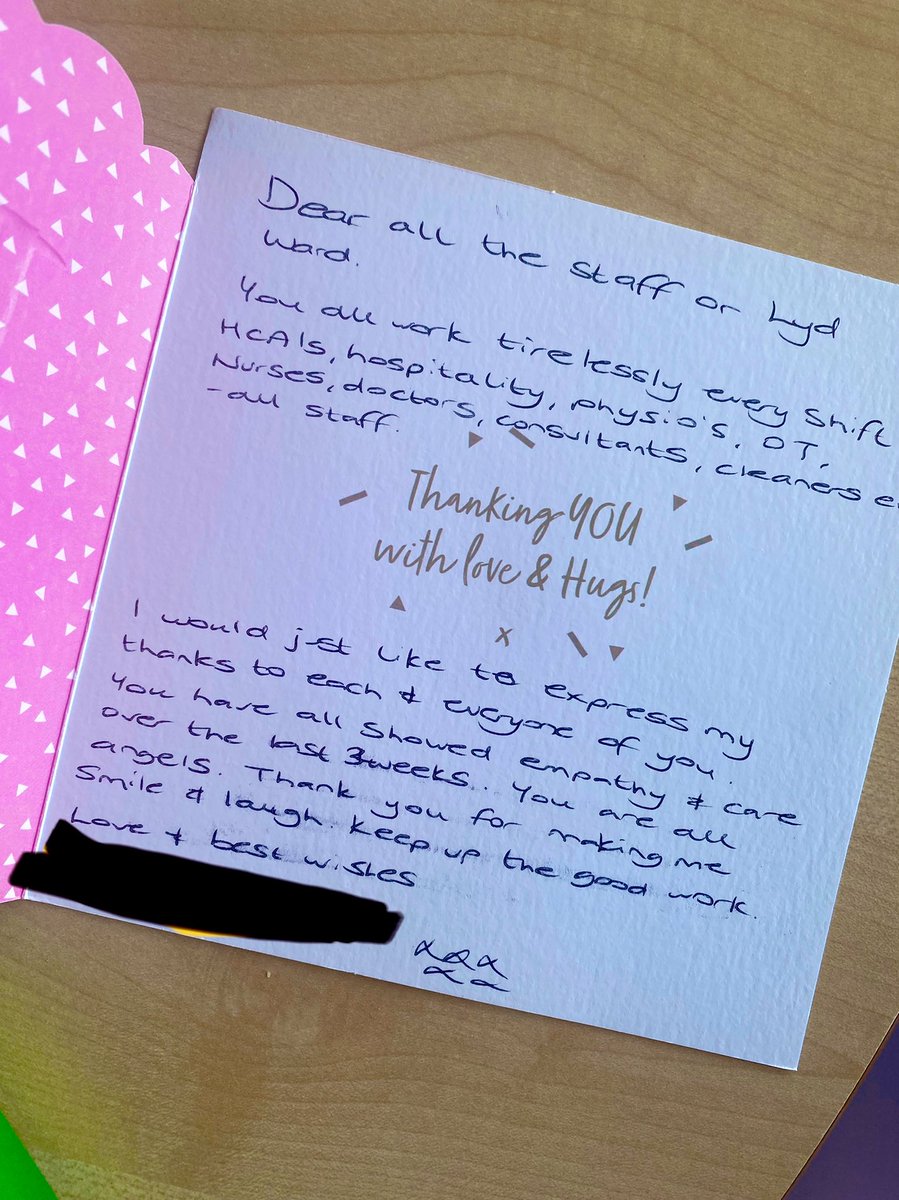 Dear all the staff or Lyd
Ward.
You all work tirelessly every shift
HCA's, hospitality, physio's, OT,
Nurses, doctors, consultants, cleaners
- all staff.
Thanking YOU
with love & Hugs!
x
I would just like to express my
thanks to each & everyone of you.
You have all showed empathy & care
over the last 3 weeks. You are all
angels. Thank you for making me
smile & laugh. Keep up the good work.
Love & best wishes
xxx
xx